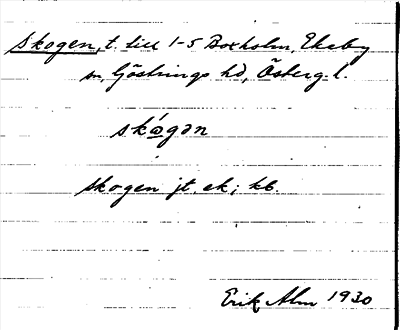 Skogen, t. till 1-5 Boxholm, Ekeby
sn, Göstrings hd, Österg. l.
skógən
skogen jt. ek; kb.
Erik Alm 1930